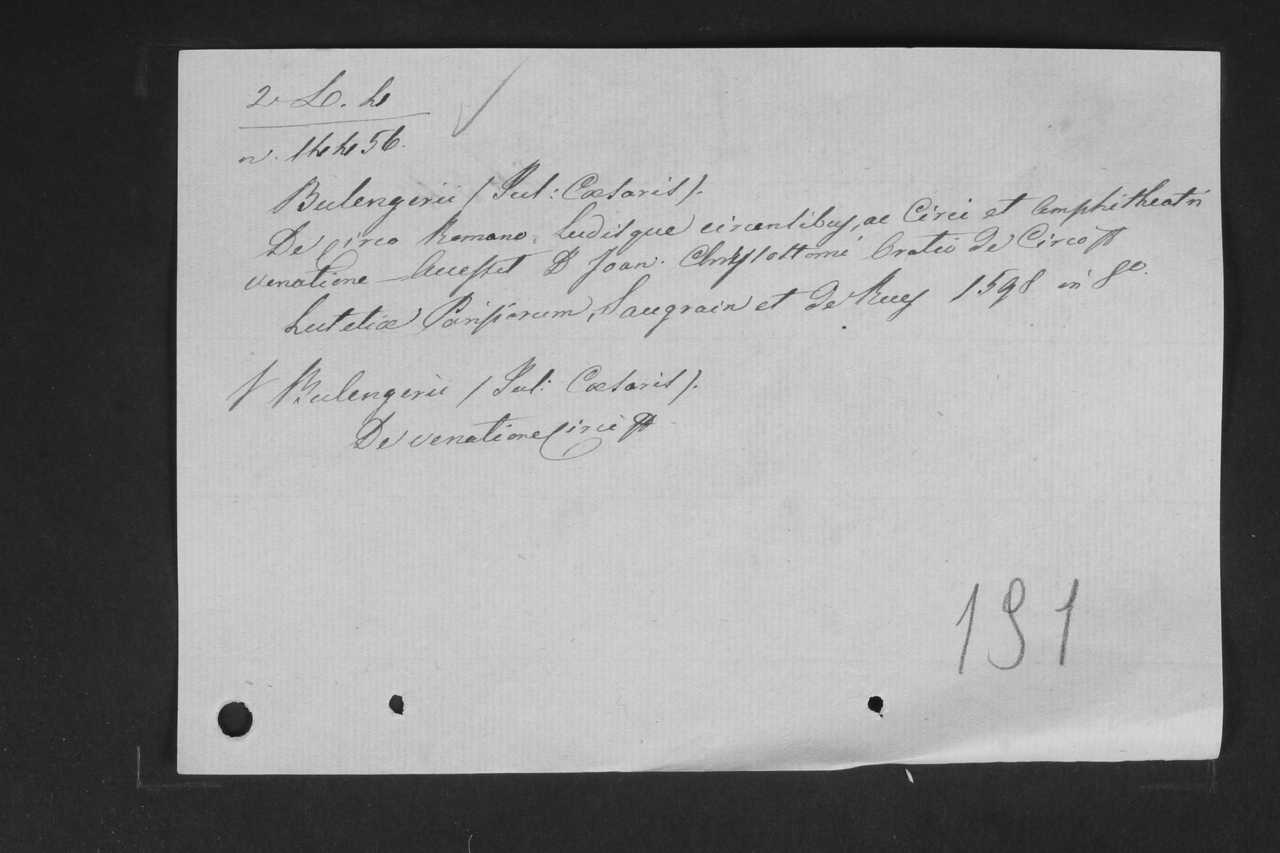 2 L. h
n. 14456.
Bulengerii (Jul: Cæsaris).
De Circo Romano, Ludisque circensibus, ac Circi et Amphitheatri
venatione Accessit D Joan. Chrysostomi Oratio de Circo
Lutetiæ Parisiorum, Saugrain et de Rues 1598 in 8o.
Bulengerii (Jul: Cæsaris).
De venatione Circi
191